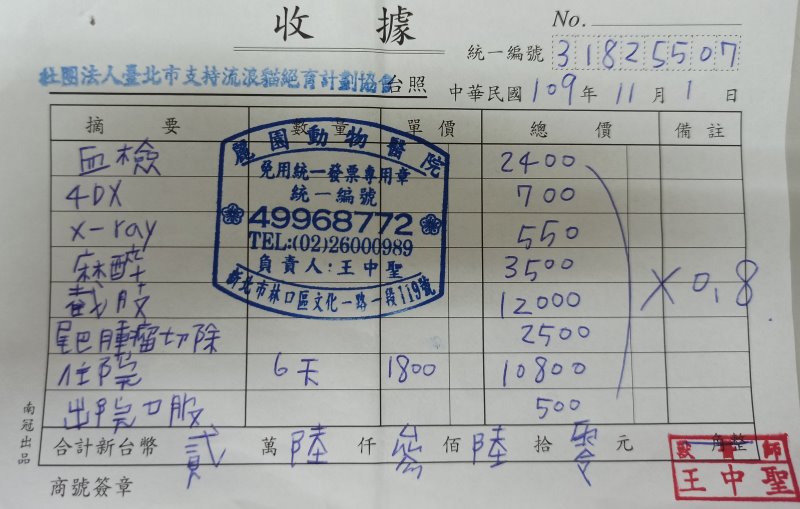 收據
No.
統一編號 31825507
社團法人臺北市支持流浪貓絕育計劃協會 台照
中華民國 109 年 11 月 1 日
摘要 數量 單價 總價 備註
血檢 2400
4DX 700
x-ray 550
麻醉 3500
截肢 12000
尾巴腫瘤切除 2500
住院 6天 1800 10800
出院口服 500
X 0.8
合計新台幣 貳 萬 陸 仟 參 佰 陸 拾 零 元 角整
商號簽章
南冠出品
麗園動物醫院
免用統一發票專用章
統一編號
49968772
TEL:(02)26000989
負責人:王中聖
新北市林口區文化一路一段119號
獸醫師
王中聖